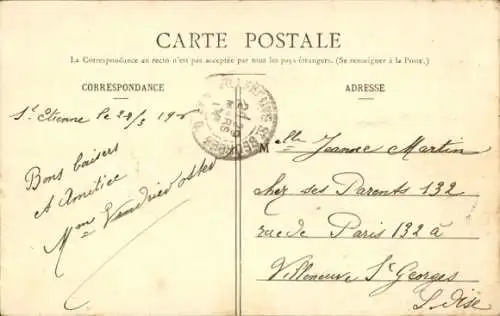 CARTE POSTALE
La Correspondance au recto n'est pas acceptée par tous les pays étrangers. (Se renseigner à la Poste.)
CORRESPONDANCE
ADRESSE
St Etienne le 28/3 190
Bons baisers
et Amitiée
Mme
Melle Jeanne Martin
chez ses Parents 132
rue de Paris 132 à
Villeneuve St Georges
S. Oise